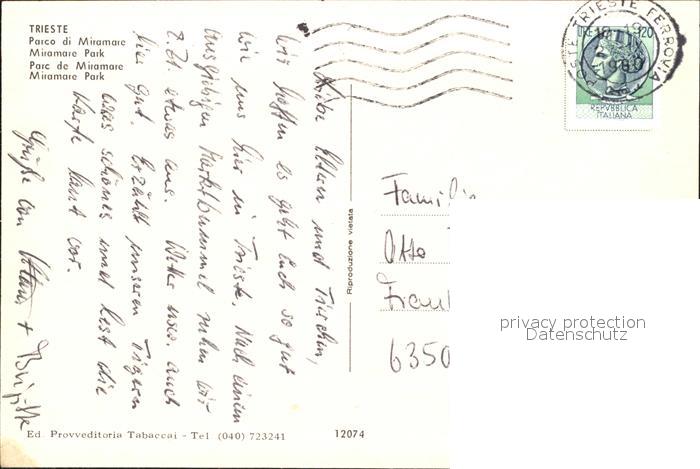 TRIESTE
Parco di Miramare
Miramare Park
Parc de Miramare
Miramare Park
Liebe Eltern und
wir hoffen es geht euch so gut
wie uns hier in Trieste. Nach einem
ausgiebigen Marktbummel ruhen wir
z.Zt. etwas aus. Wetter usw. auch
hier gut. Erzählt unseren Tigern
was schönes und lest die
Karte laut vor.
Grüße von + Brigitte
Riproduzione vietata
LIRE 120
TRIESTE FERROVIA
1980
REPVBBLICA
ITALIANA
Familie
Otto
6350
privacy protection
Datenschutz
Ed. Provveditoria Tabaccai - Tel. (040) 723241
12074